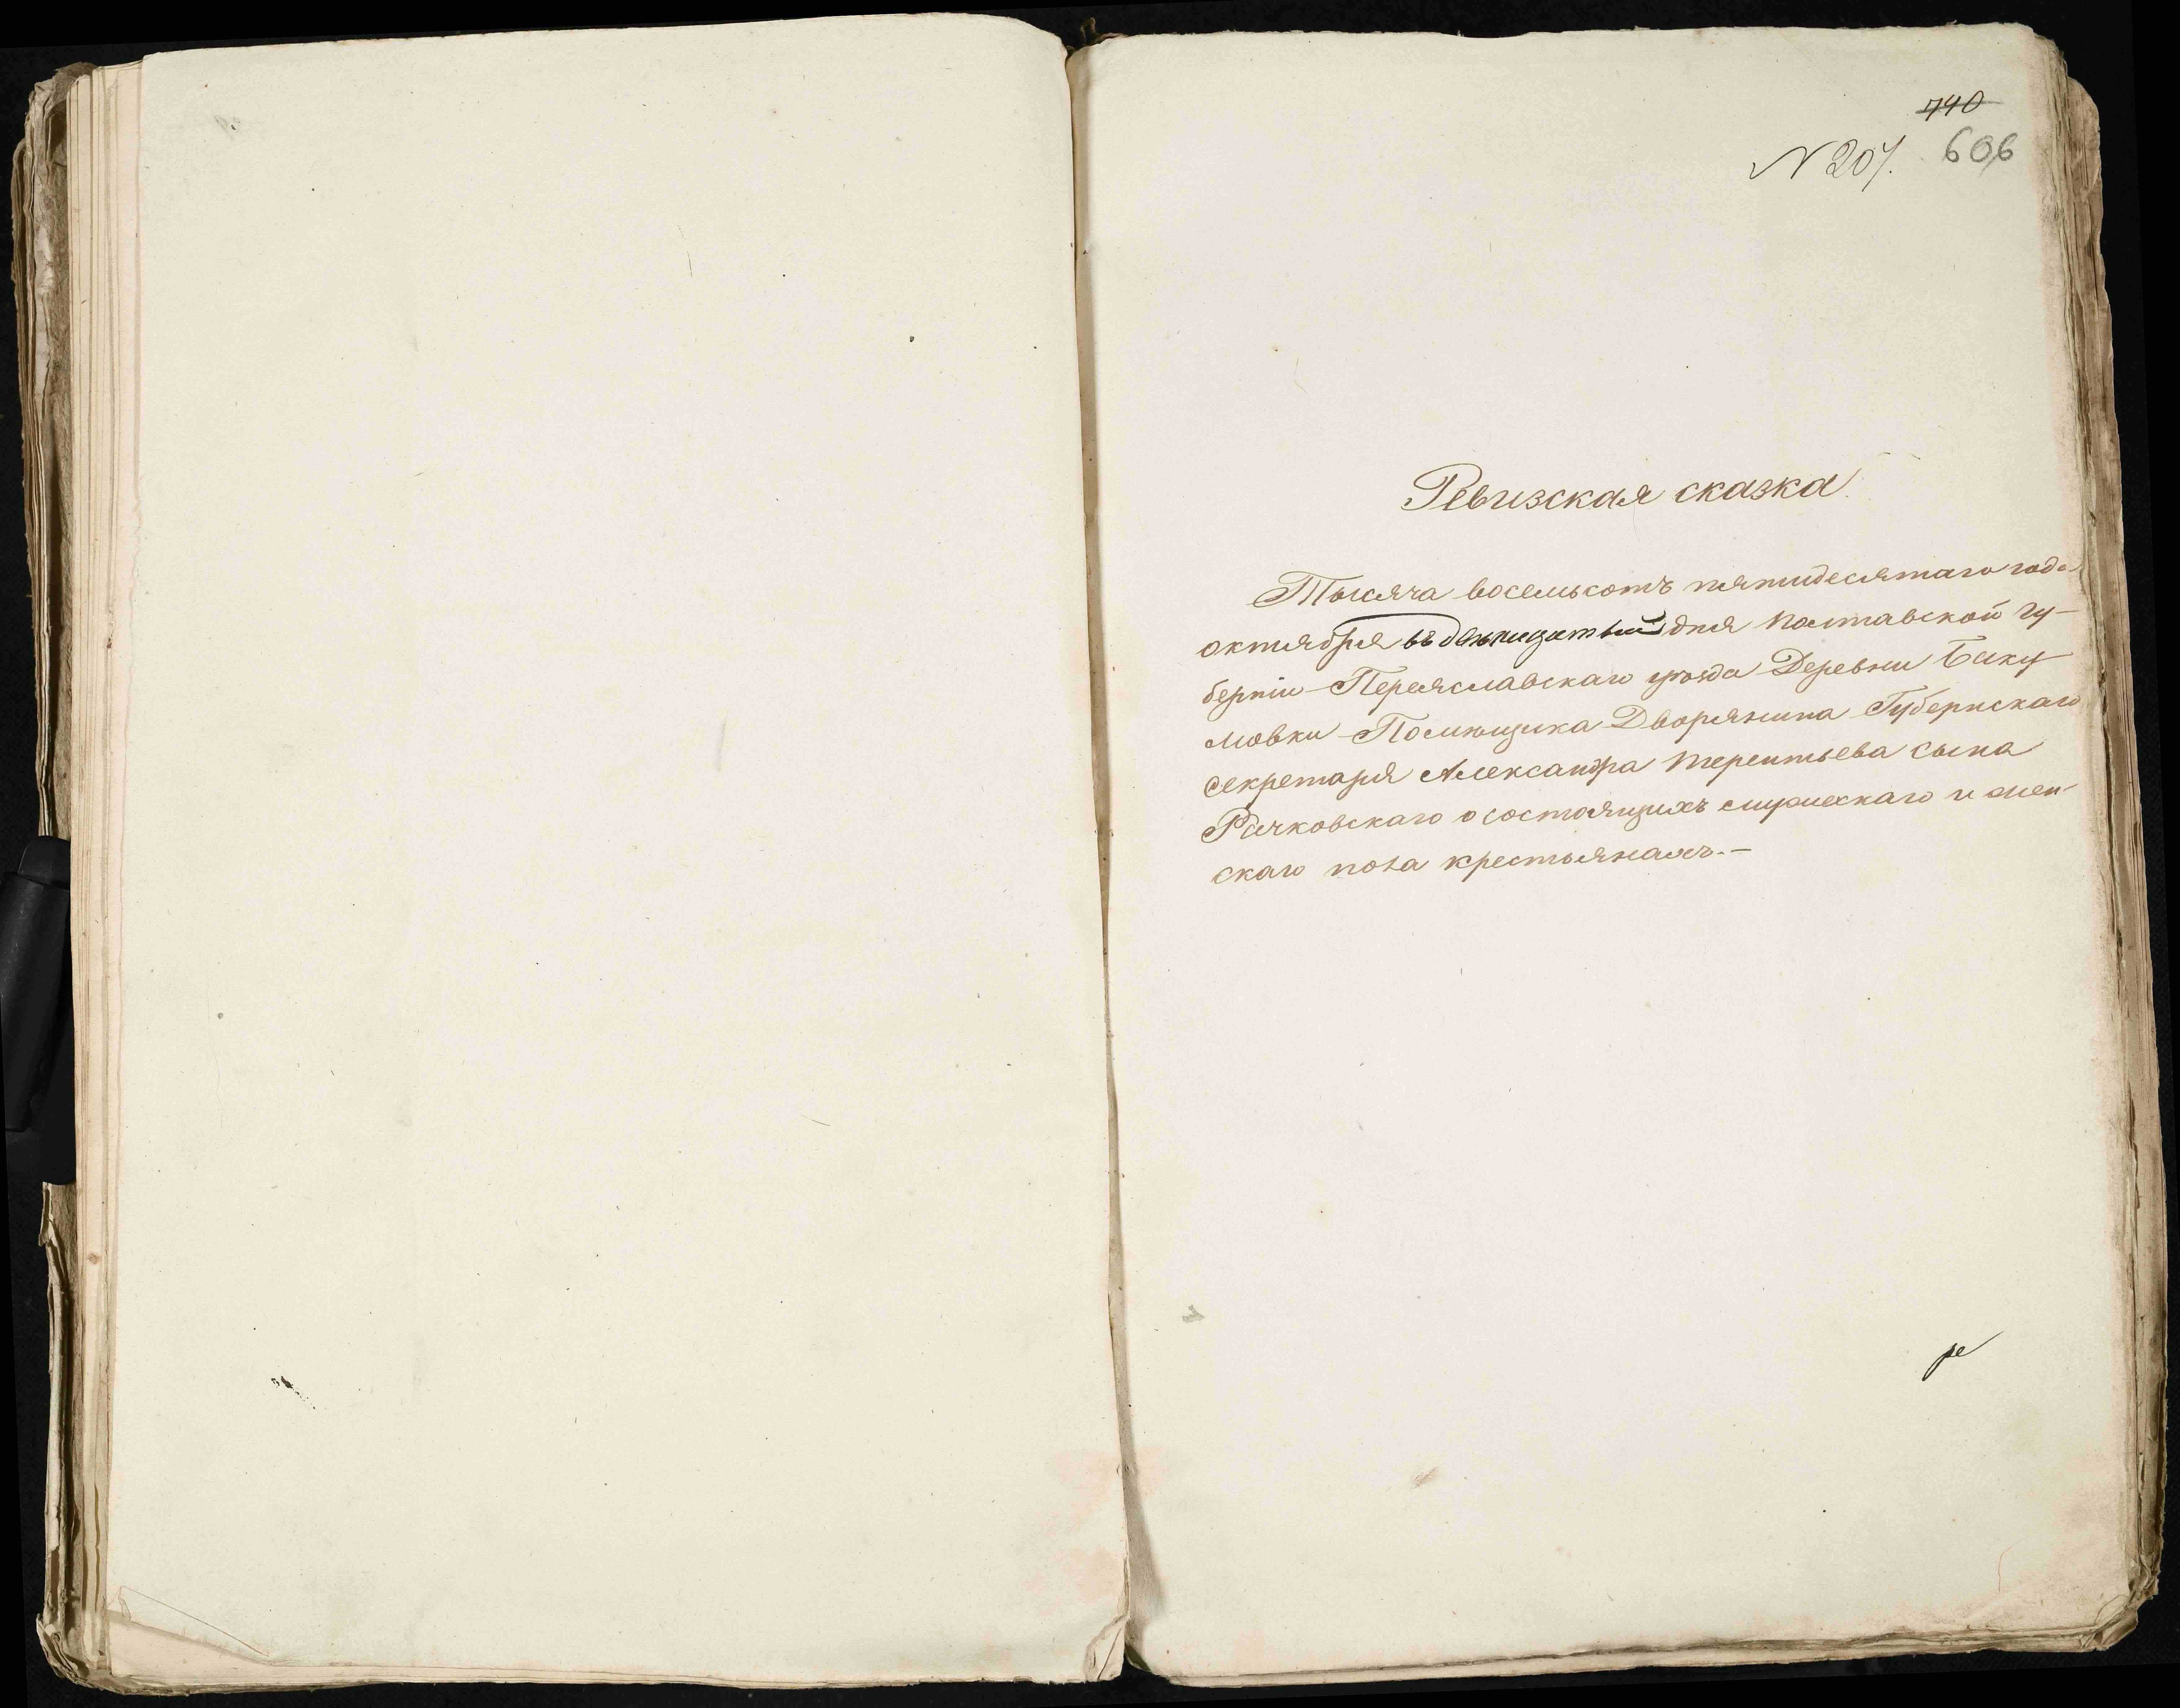 740
N 207. 606
Ревизская сказка
Тысяча восемьсотъ пятидесятаго года
октября дня Полтавской гу-
берніи Переяславскаго уѣзда Деревни Баку
мовки Помѣщика Дворянина Губернскаго
Секретаря Александра Терентьева сына
Рачковскаго о состоящихъ мужескаго и жен-
скаго пола крестьянахъ.-